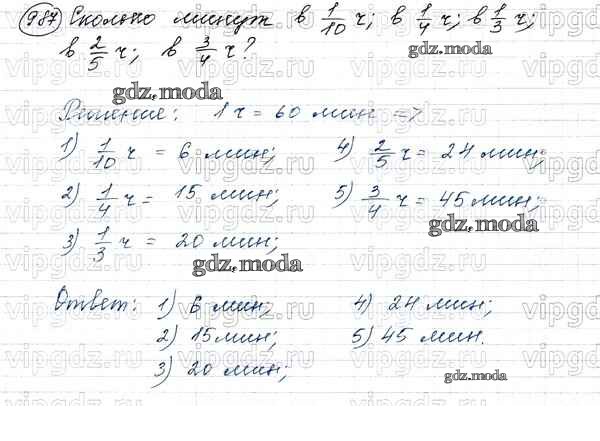 987 Сколько минут в 1/10 ч; в 1/4 ч; в 1/3 ч;
в 2/5 ч; в 3/4 ч?
gdz.moda
gdz.moda
Решение: 1 ч = 60 мин =>
1) 1/10 ч = 6 мин; 4) 2/5 ч = 24 мин;
2) 1/4 ч = 15 мин; 5) 3/4 ч = 45 мин;
gdz.moda
3) 1/3 ч = 20 мин;
gdz.moda
Ответ: 1) 6 мин; 4) 24 мин;
2) 15 мин; 5) 45 мин.
3) 20 мин;
gdz.moda
vipgdz.ru